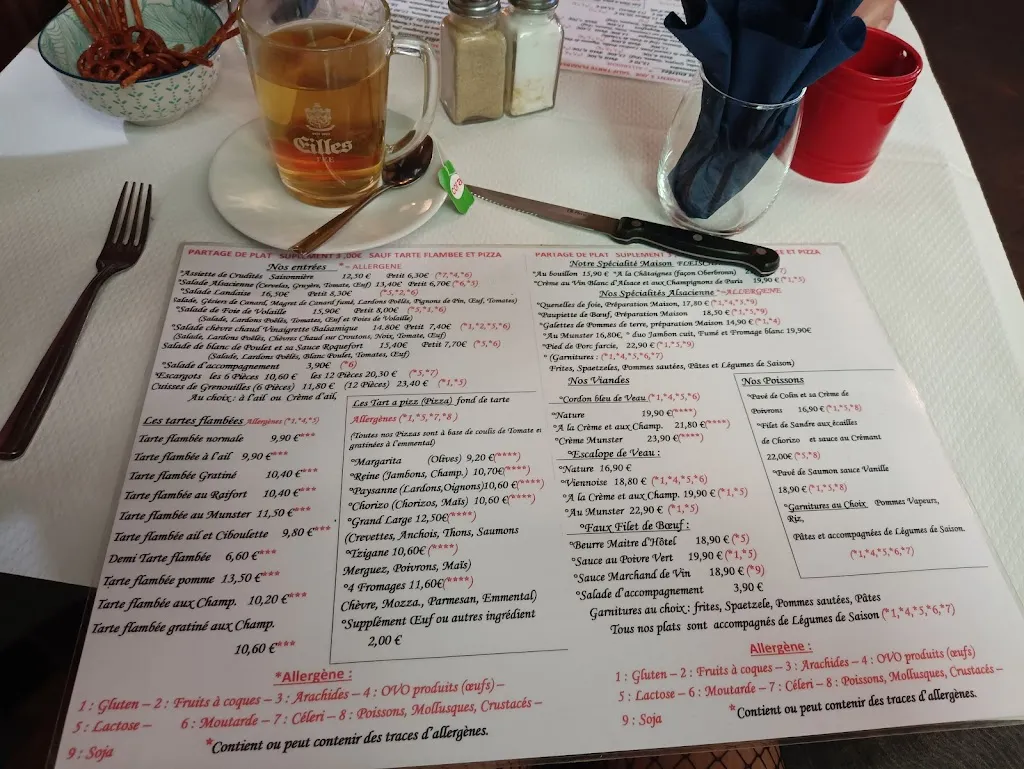 Eilles
TEE
PARTAGE DE PLAT SUPLEMENT 3,00€ SAUF TARTE FLAMBEE ET PIZZA
Nos entrées *~ALLERGENE
°Assiette de Crudités Saisonnière 12,50 € Petit 6,30€ (*7,*4,*6)
°Salade Alsacienne (Cervelas, Gruyère, Tomate, Œuf) 13,40€ Petit 6,70€ (*6,*5)
°Salade Landaise 16,50€ Petit 8,30€ (*5,*2,*6)
Salade, Gésiers de Canard, Magret de Canard fumé, Lardons Poêlés, Pignons de Pin, Œuf, Tomates)
°Salade de Foie de Volaille 15,90€ Petit 8,00€ (*5,*1,*6)
(Salade, Lardons Poêlés, Tomates, Œuf et Foies de Volaille)
°Salade chèvre chaud Vinaigrette Balsamique 14.80€ Petit 7,40€ (*1,*2,*5,*6)
(Salade, Lardons Poêlés, Chèvres Chaud sur Croutons, Noix, Tomate, Œuf)
Salade de blanc de Poulet et sa Sauce Roquefort 15,40€ Petit 7,70€ (*5,*6)
(Salade, Lardons Poêlés, Blanc Poulet, Tomates, Œuf)
°Salade d'accompagnement 3,90€ (*6)
°Escargots les 6 Pièces 10,60 € les 12 Pièces 20,30 € (*5,*7)
Cuisses de Grenouilles (6 Pièces) 11,80 € (12 Pièces) 23,40 € (*1,*5)
Au choix : à l'ail ou Crème d'ail,
Les tartes flambées Allergènes (*1,*4,*5)
Tarte flambée normale 9,90 €***
Tarte flambée à l'ail 9,90 €***
Tarte flambée Gratiné 10,40 €***
Tarte flambée au Raifort 10,40 €***
Tarte flambée au Munster 11,50 €***
Tarte flambée ail et Ciboulette 9,80 €***
Demi Tarte flambée 6,60 €***
Tarte flambée pomme 13,50 €***
Tarte flambée aux Champ. 10,20 €***
Tarte flambée gratiné aux Champ.
10,60 €***
Les Tart a pizz (Pizza) fond de tarte
Allergènes (*1,*5,*7,*8 )
(Toutes nos Pizzas sont à base de coulis de Tomate et
gratinées à l'emmental)
°Margarita (Olives) 9,20 €(****)
°Reine (Jambons, Champ.) 10,70€(****)
°Paysanne (Lardons,Oignons)10,60 €(****)
°Chorizo (Chorizos, Maïs) 10,60 €(****)
°Grand Large 12,50€(****)
(Crevettes, Anchois, Thons, Saumons
°Tzigane 10,60€ (****)
Merguez, Poivrons, Maïs)
°4 Fromages 11,60€(****)
Chèvre, Mozza., Parmesan, Emmental)
°Supplément Œuf ou autres ingrédient
2,00 €
*Allergène :
1 : Gluten – 2 : Fruits à coques – 3 : Arachides – 4 : OVO produits (œufs) –
5 : Lactose – 6 : Moutarde – 7 : Céleri – 8 : Poissons, Mollusques, Crustacés –
9 : Soja *Contient ou peut contenir des traces d'allergènes.
PARTAGE DE PLAT SUPLEMENT 3 TE ET PIZZA
Notre Spécialité Maison FLEISCH
°Au bouillon 15,90 € °A la Châtaignes (façon Oberbronn)
°Crème au Vin Blanc d'Alsace et aux Champignons de Paris 19,90 € (*1,*5)
Nos Spécialités Alsacienne *~ALLERGENE
°Quenelles de foie, Préparation Maison, 17,80 € (*1,*4,*5,*9)
°Paupiette de Bœuf, Préparation Maison 18,50 € (*1,*5,*9)
°Galettes de Pommes de terre, préparation Maison 14,90 € (*1,*4)
°Au Munster 16,80€, ° duo Jambon cuit, Fumé et Fromage blanc 19,90€
°Pied de Porc farcie, 22,90 € (*1,*5,*9)
° (Garnitures : (*1,*4,*5,*6,*7)
Frites, Spaetzeles, Pommes sautées, Pâtes et Légumes de Saison)
Nos Viandes
°Cordon bleu de Veau (*1,*4,*5,*6)
°Nature 19,90 €(****)
°A la Crème et aux Champ. 21,80 €(****)
°Crème Munster 23,90 €(****)
°Escalope de Veau :
°Nature 16,90 €
°Viennoise 18,80 € (*1,*4,*5,*6)
°A la Crème et aux Champ. 19,90 € (*1,*5)
°Au Munster 22,90 € (*1,*5)
°Faux Filet de Bœuf :
°Beurre Maitre d'Hôtel 18,90 € (*5)
°Sauce au Poivre Vert 19,90 € (*1,*5)
°Sauce Marchand de Vin 18,90 € (*9)
°Salade d'accompagnement 3,90 €
Garnitures au choix : frites, Spaetzele, Pommes sautées, Pâtes
Tous nos plats sont accompagnés de Légumes de Saison (*1,*4,*5,*6,*7)
Nos Poissons
°Pavé de Colin et sa Crème de
Poivrons 16,90 € (*1,*5,*8)
°Filet de Sandre aux écailles
de Chorizo et sauce au Crémant
22,00€ (*5,*8)
°Pavé de Saumon sauce Vanille
18,90 € (*1,*5,*8)
°Garnitures au Choix Pommes Vapeurs,
Riz,
Pâtes et accompagnées de Légumes de Saison.
(*1,*4,*5,*6,*7)
Allergène :
1 : Gluten – 2 : Fruits à coques – 3 : Arachides – 4 : OVO produits (œufs)
5 : Lactose – 6 : Moutarde – 7 : Céleri – 8 : Poissons, Mollusques, Crustacés –
9 : Soja *Contient ou peut contenir des traces d'allergènes.